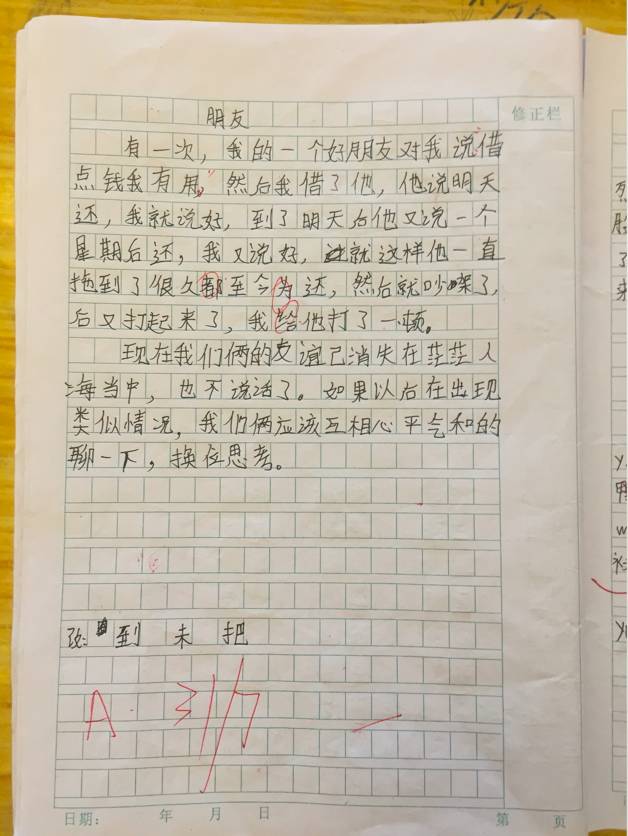 修正栏
朋友
有一次，我的一个好朋友对我说借
点钱我有用，然后我借了他，他说明天
还，我就说好，到了明天后他又说一个
星期后还，我又说好，就这样他一直
拖到了很久都至今为还，然后就吵架了，
后又打起来了，我给他打了一顿。
现在我们俩的友谊已消失在茫茫人
海当中，也不说话了。如果以后在出现
类似情况，我们俩应该互相心平气和的
聊一下，换位思考。
改：到 未 把
A
日期： 年 月 日 第 页